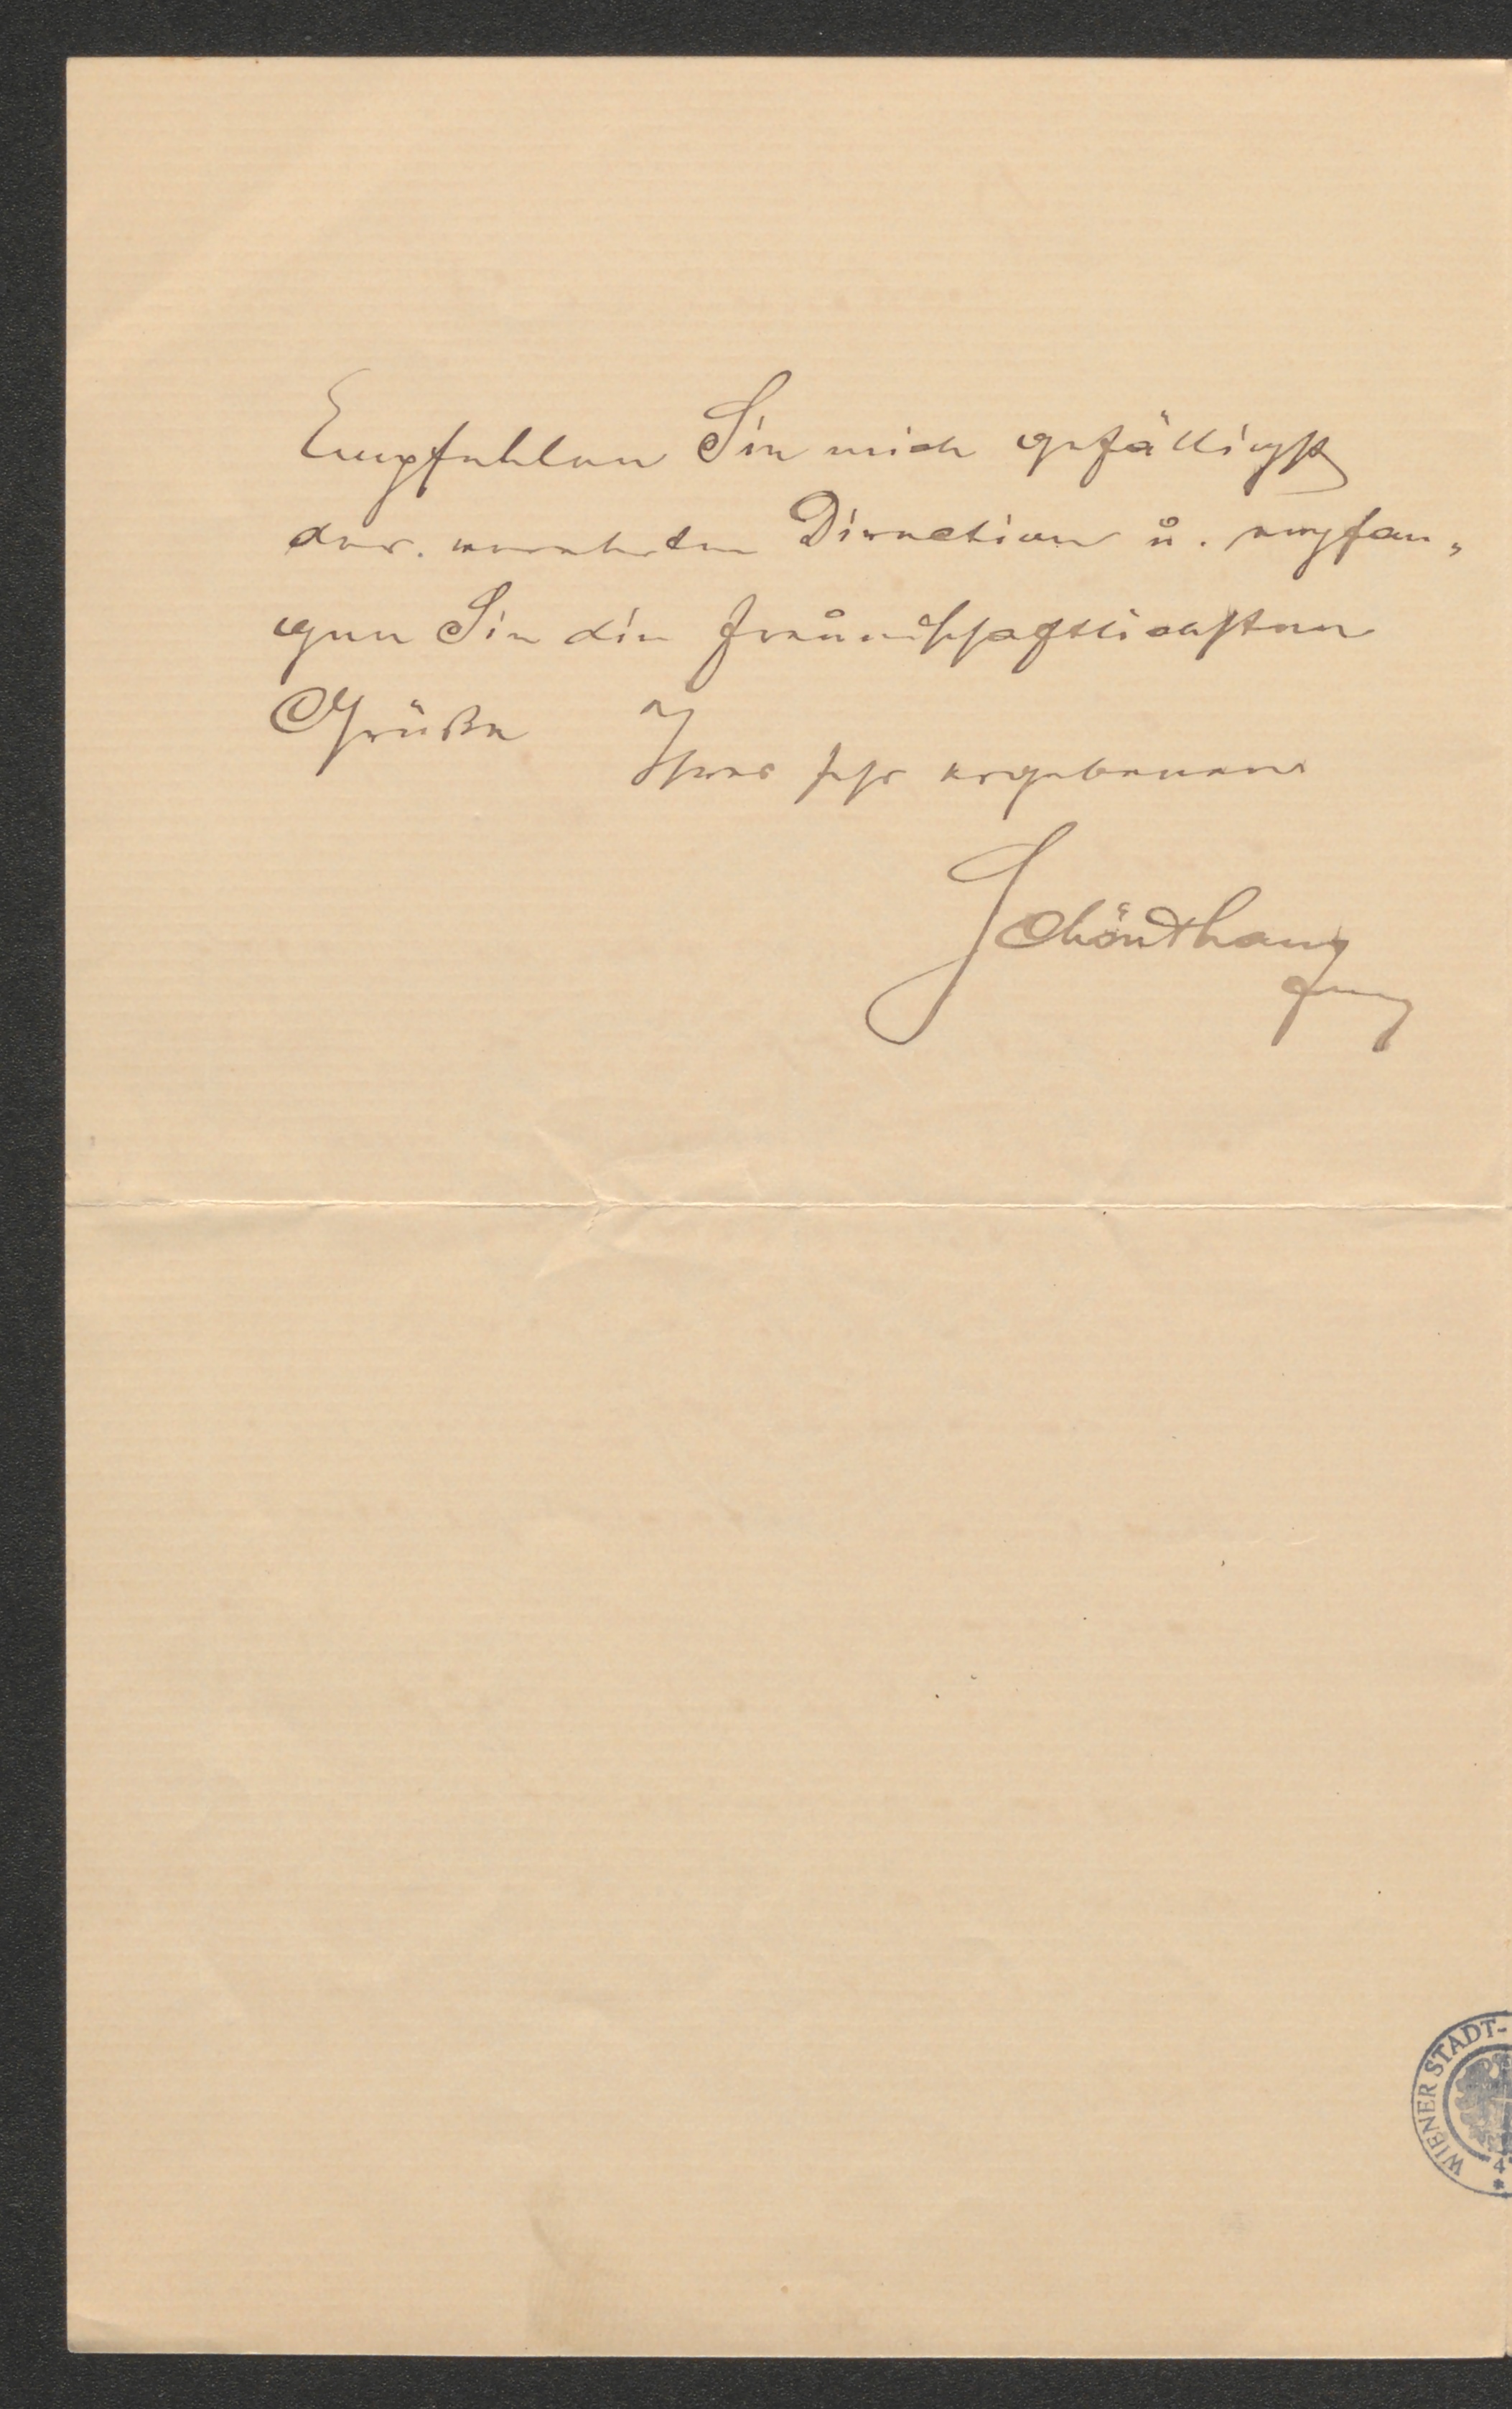 Empfehlen Sie mich gefälligst
der verehrten Direction u. empfan„
gen Sie die freundschaftlichsten
Grüße Ihres sehr ergebenen
Schönthan
WIENER STADT-
4